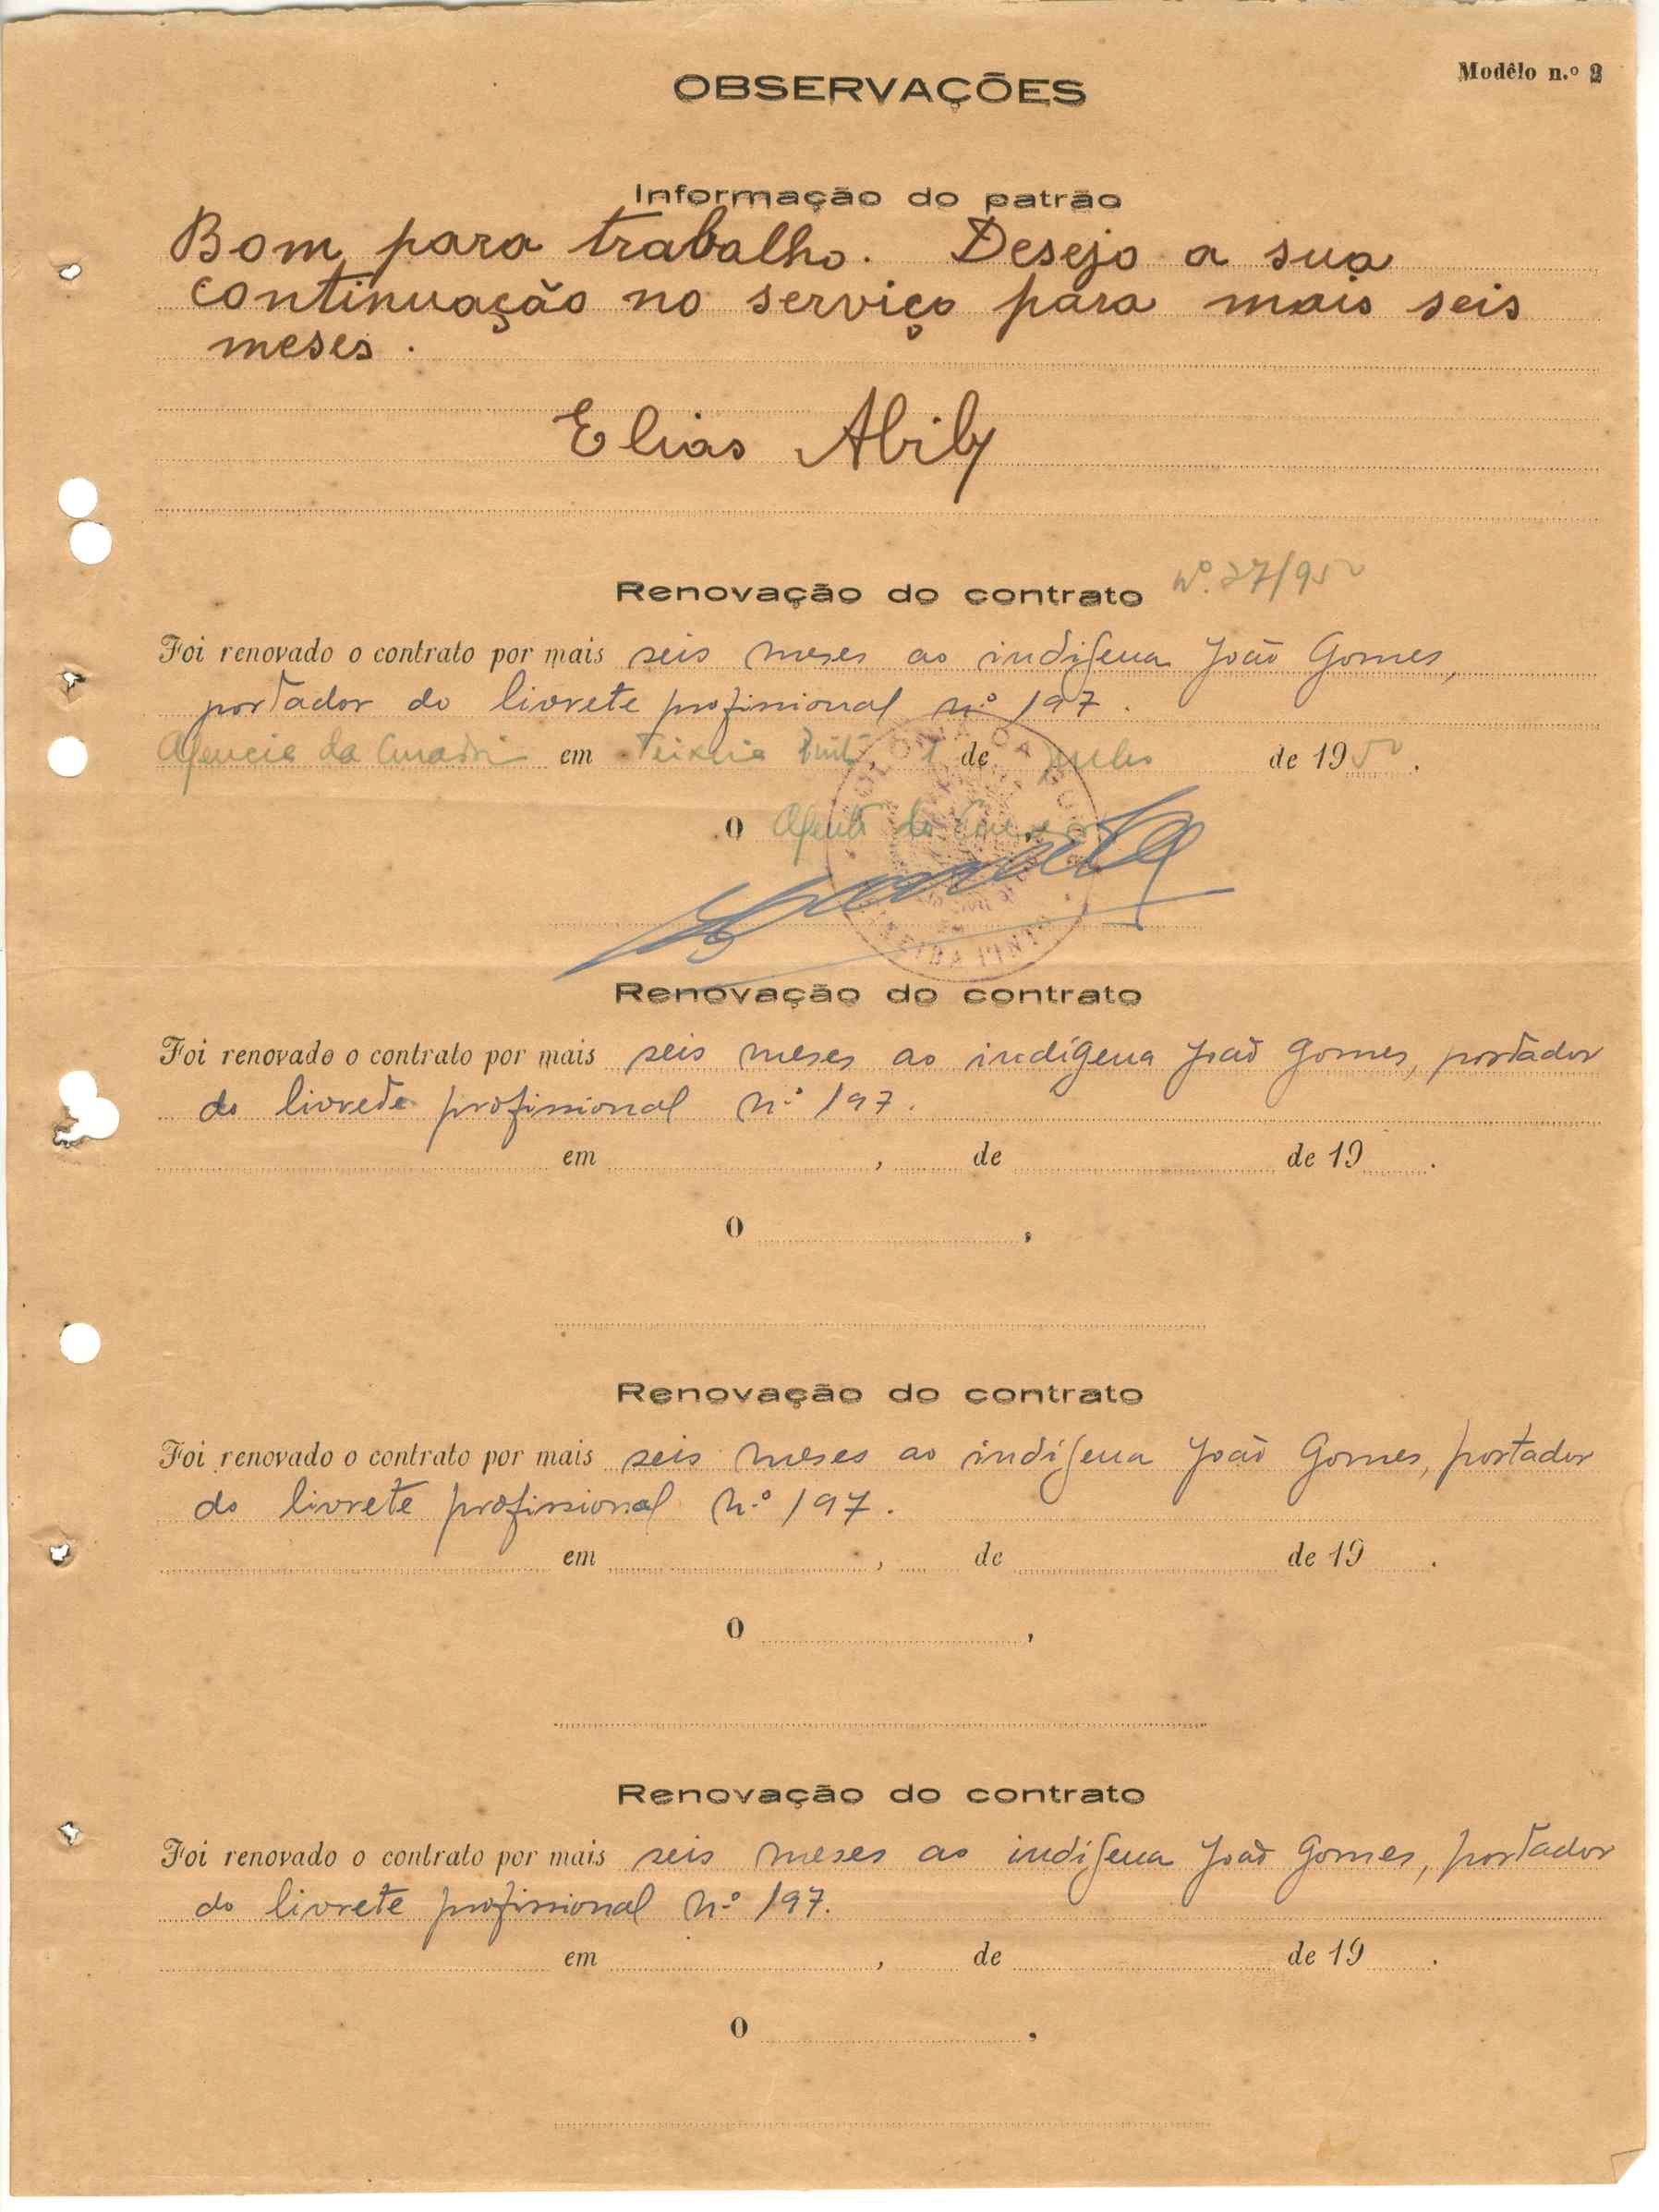 Modêlo n.º 2
OBSERVAÇÕES
Informação do patrão
Bom para trabalho. Desejo a sua
continuação no serviço para mais seis
meses.
Elias Abily
Renovação do contrato Nº 27/950
Foi renovado o contrato por mais seis meses ao indígena João Gomes,
portador do livrete profissional n.º 197.
Agencia da Curadoria em Teixeira Pinto, 1 de Julho de 1950.
O Agente do Curador
COLONIA DA GUINÉ
TEIXEIRA PINTO
Renovação do contrato
Foi renovado o contrato por mais seis meses ao indígena João Gomes, portador
do livrete profissional n.º 197.
em , de de 19 .
O ,
Renovação do contrato
Foi renovado o contrato por mais seis meses ao indígena João Gomes, portador
do livrete profissional n.º 197.
em , de de 19 .
O ,
Renovação do contrato
Foi renovado o contrato por mais seis meses ao indígena João Gomes, portador
do livrete profissional n.º 197.
em , de de 19 .
O ,